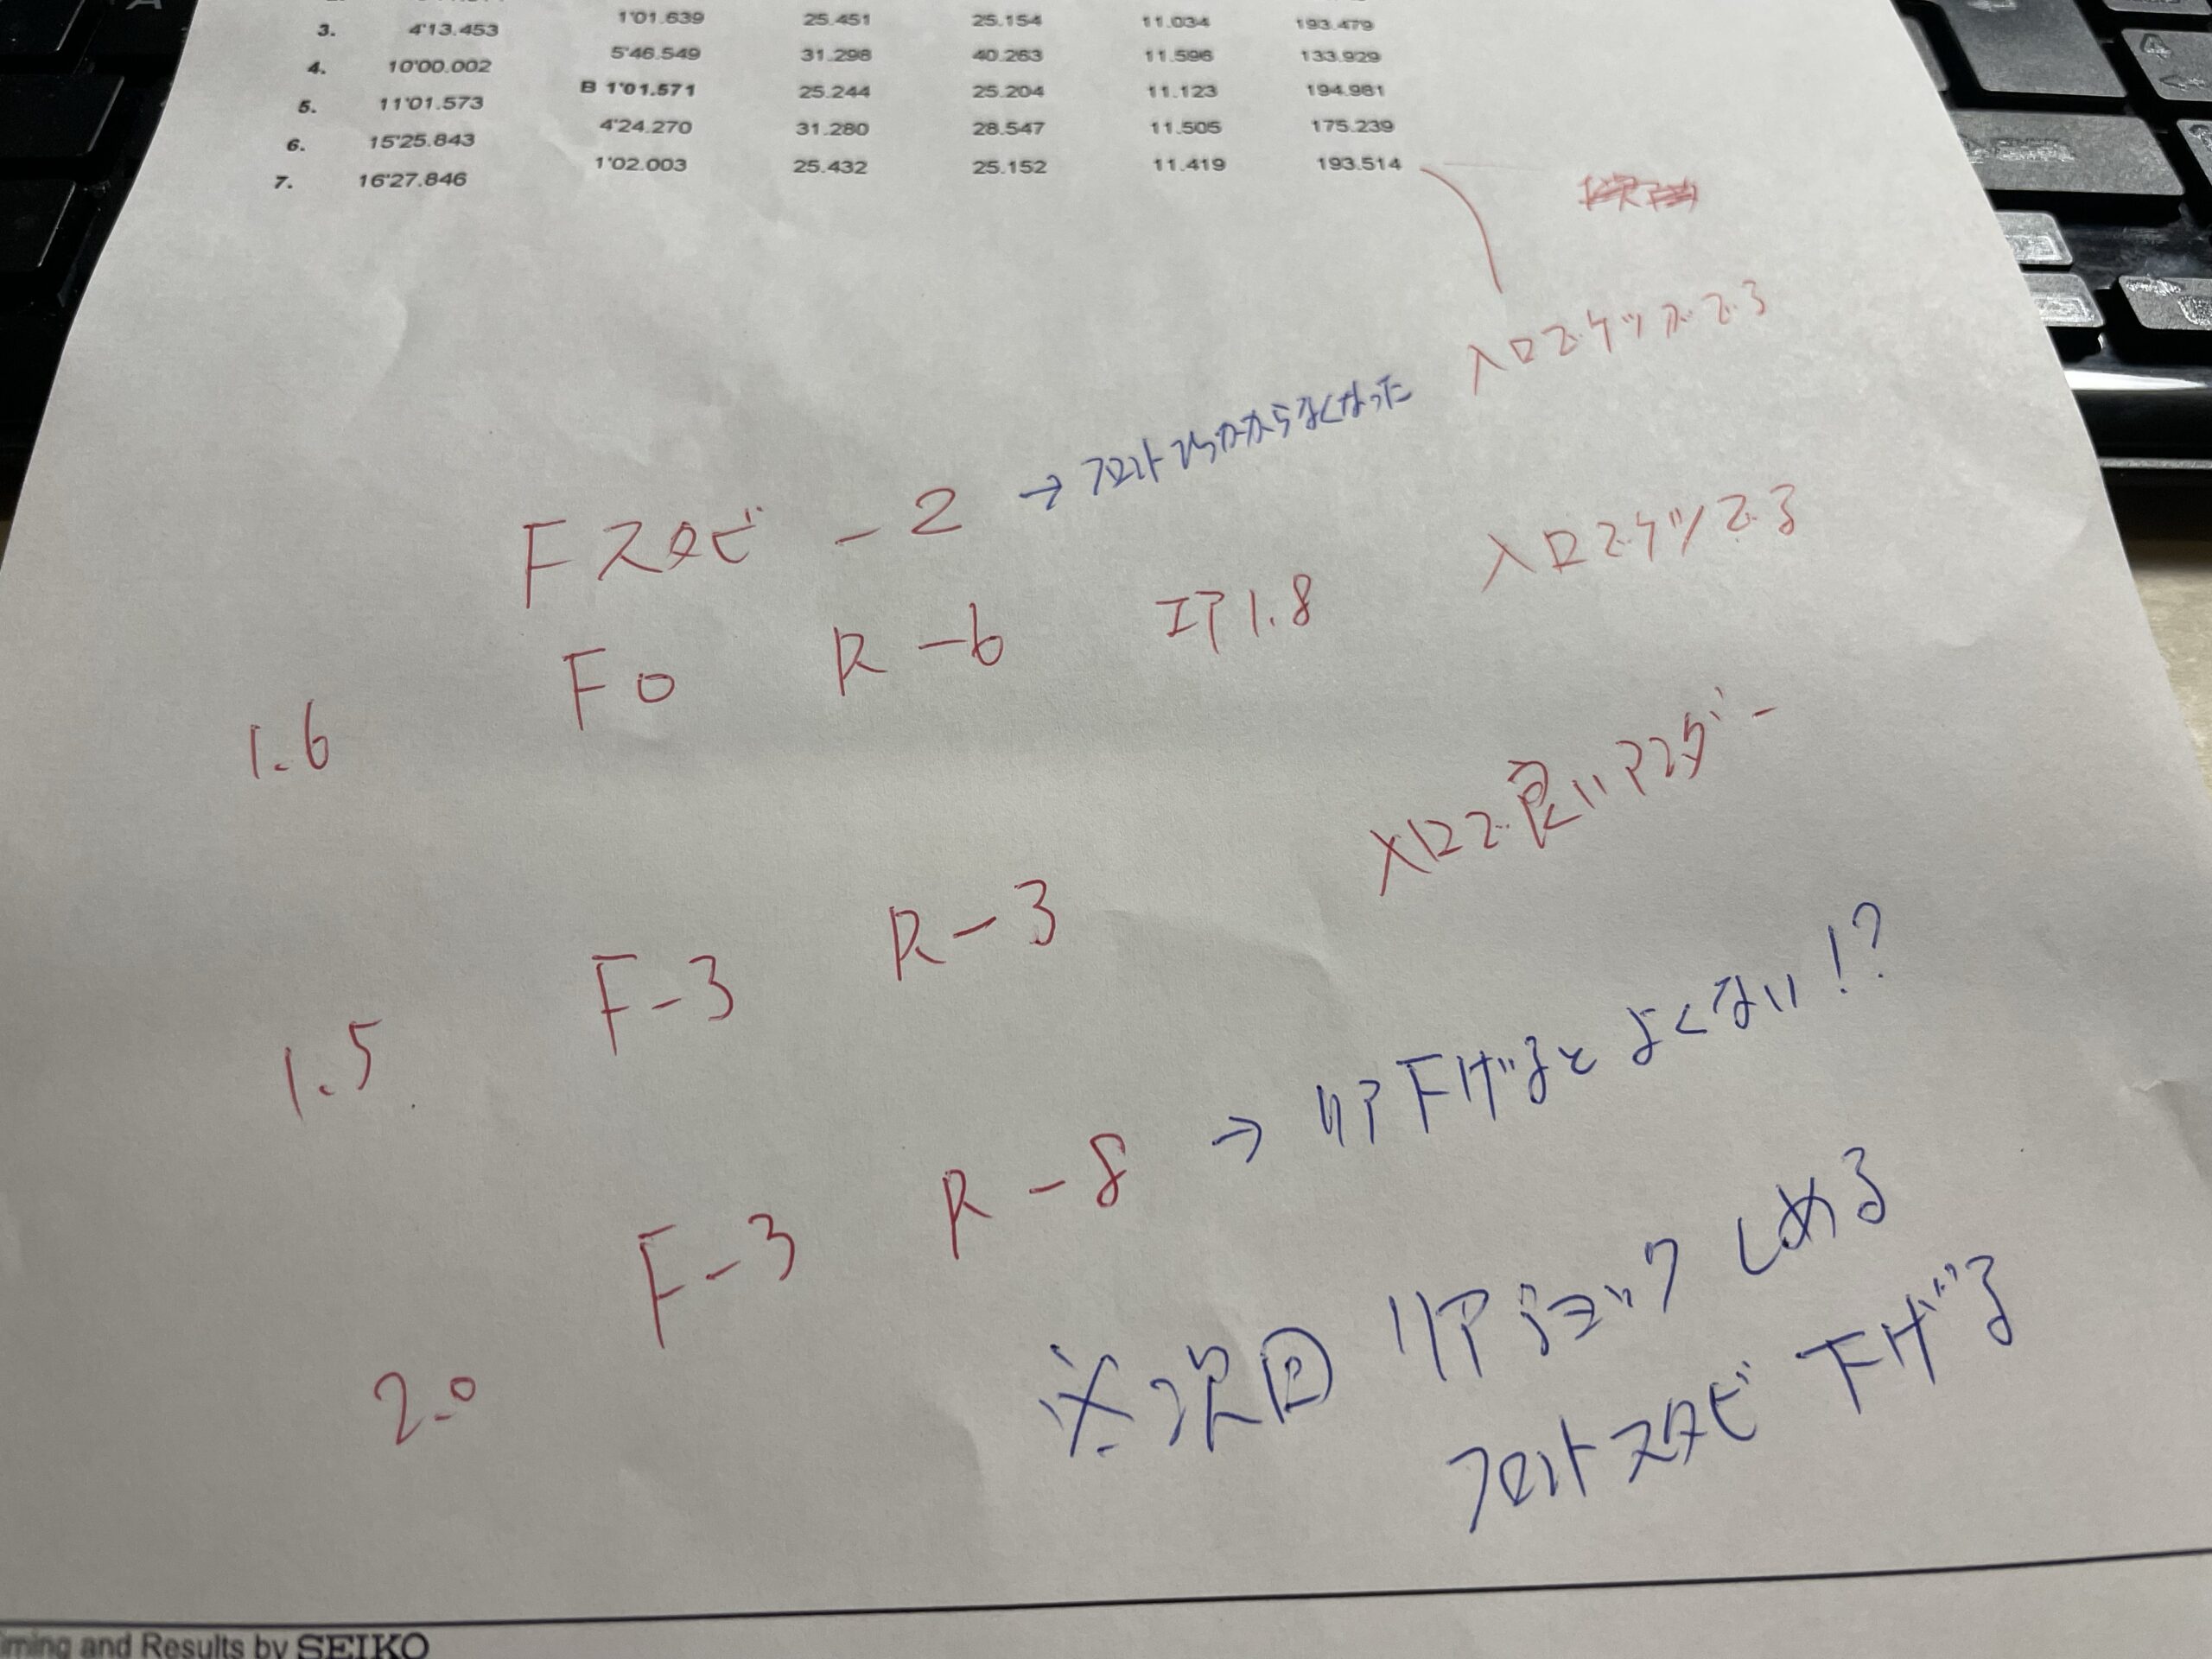 3. 4'13.453 1'01.639 25.451 25.154 11.034 193.479
4. 10'00.002 5'46.549 31.298 40.263 11.596 133.929
5. 11'01.573 B 1'01.571 25.244 25.204 11.123 194.981
6. 15'25.843 4'24.270 31.280 28.547 11.505 175.239
7. 16'27.846 1'02.003 25.432 25.152 11.419 193.514
入口でケツがでる
Fスタビ -2 → フロントひっかからなくなった
1.6 F0 R-6 エア1.8 入口でケツでる
1.5 F-3 R-3 入口で良いアンダー
2.0 F-3 R-8 → リア下げるとよくない!?
※次回 リアショックしめる
フロントスタビ 下げる
Timing and Results by SEIKO